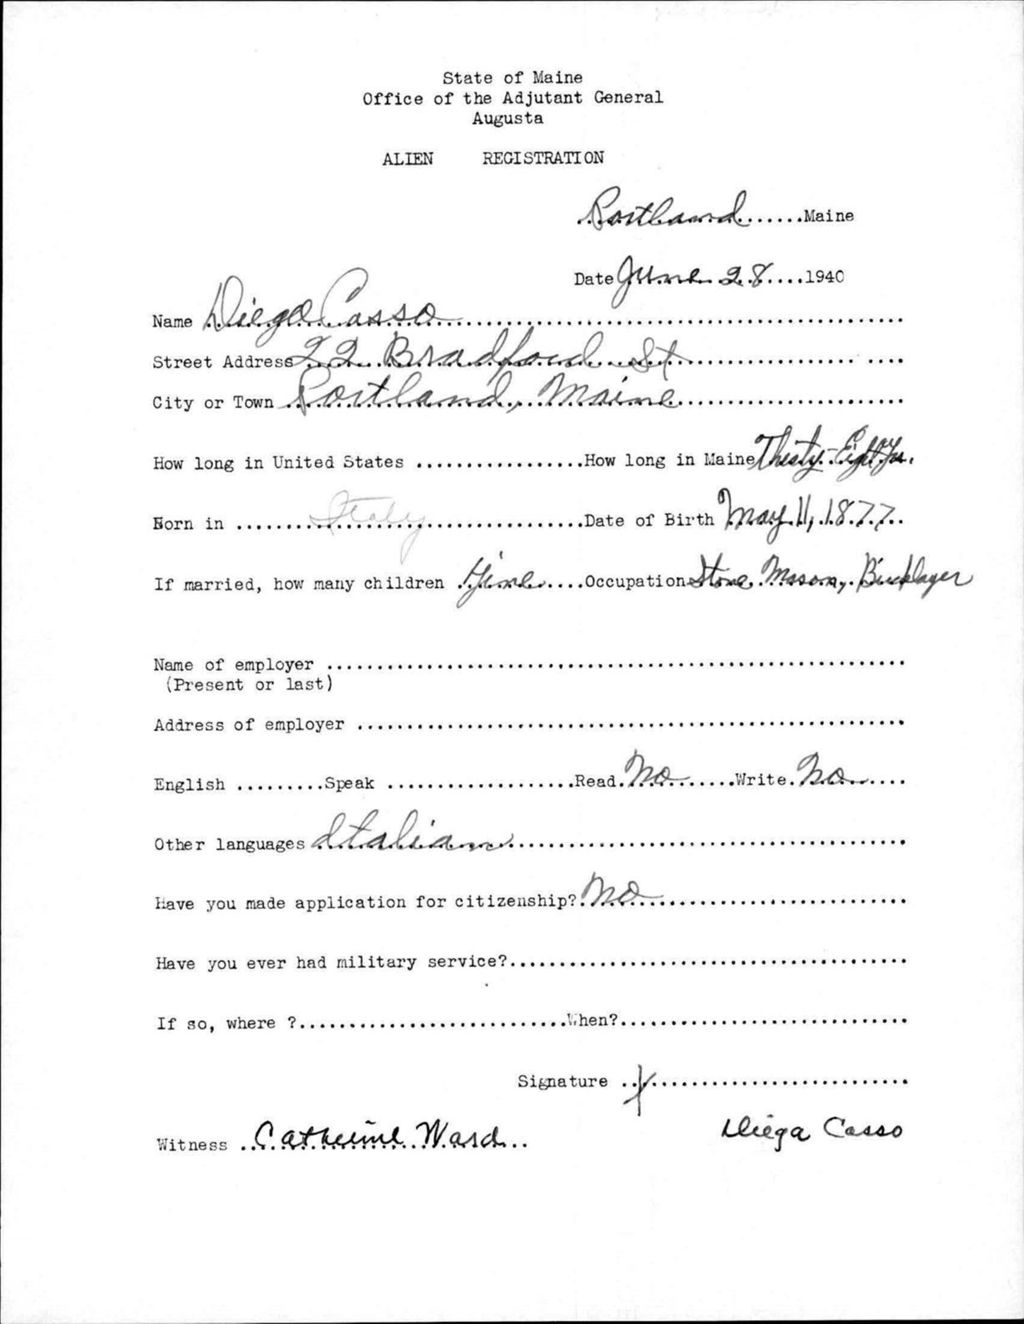 State of Maine
Office of the Adjutant General
Augusta
ALIEN REGISTRATION
Portland.......Maine
Date June 28....1940
Name Diego Casso
Street Address 22 Bradford St
City or Town Portland, Maine
How long in United States .................How long in Maine Thirty-Eight Yrs.
Born in Italy Date of Birth May 11, 1877
If married, how many children Five Occupation Stone Mason, Bricklayer
Name of employer
(Present or last)
Address of employer
English .........Speak ...................Read No Write No
Other languages Italian
Have you made application for citizenship? No
Have you ever had military service?
If so, where ?...........................When?
Signature X
Witness Catherine Ward Diega Casso